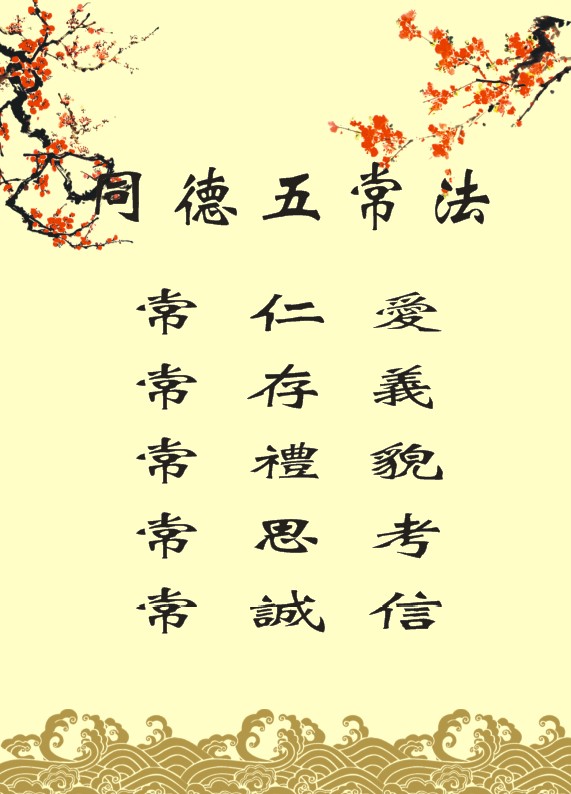 同德五常法
常仁愛
常存義
常禮貌
常思考
常誠信